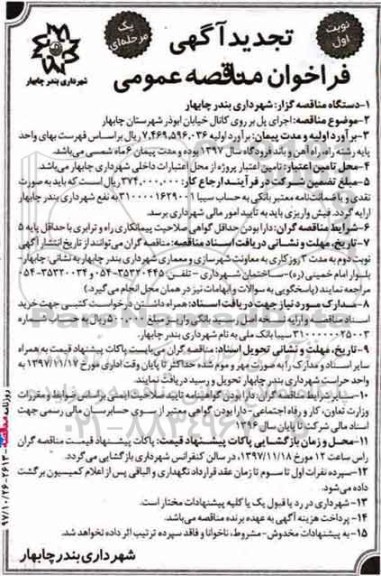 نوبت اول
یک مرحله‌ای
تجدید آگهی
فراخوان مناقصه عمومی
شهرداری بندر چابهار
۱-دستگاه مناقصه گزار: شهرداری بندر چابهار
۲-موضوع مناقصه: اجرای پل بر روی کانال خیابان ابوذر شهرستان چابهار
۳-برآورد اولیه و مدت پیمان: برآورد اولیه ۷,۴۶۹,۵۹۶,۰۳۶ ریال براساس فهرست بهای واحد
پایه رشته راه، راه آهن و باند فرودگاه سال ۱۳۹۷ بوده و مدت پیمان ۶ ماه شمسی می‌باشد.
۴-محل تامین اعتبار: تامین اعتبار پروژه از محل اعتبارات داخلی شهرداری چابهار می‌باشد.
۵-مبلغ تضمین شرکت در فرآیند ارجاع کار: ۳۷۴,۰۰۰,۰۰۰ ریال است که باید به صورت
نقدی و یا ضمانت‌نامه معتبر بانکی به حساب سیبا ۳۱۰۰۰۰۱۶۲۹۰۰۱ به نفع شهرداری بندر چابهار
ارایه گردد. فیش واریزی باید به تایید امور مالی شهرداری برسد.
۶-شرایط مناقصه گران: دارا بودن حداقل گواهی صلاحیت پیمانکاری راه و ترابری با حداقل پایه ۵
۷-تاریخ، مهلت و نشانی دریافت اسناد مناقصه: مناقصه گران می‌توانند از تاریخ انتشار آگهی
نوبت دوم به مدت ۳ روز کاری به معاونت شهرسازی و معماری شهرداری بندر چابهار به نشانی: چابهار-
بلوار امام خمینی (ره)-ساختمان شهرداری - تلفن: ۳۵۳۲۰۴۴۵-۰۵۴ و ۳۵۳۳۰۰۳۴-۰۵۴
مراجعه نمایند (پاسخگویی به سوالات و ابهامات نیز در همان محل انجام می‌گیرد.)
۸-مدارک مورد نیاز جهت دریافت اسناد: همراه داشتن درخواست کتبی جهت خرید
اسناد مناقصه و ارایه نسخه اصل رسید بانکی واریز مبلغ ۵۰۰,۰۰۰ ریال به حساب شماره
۳۱۰۰۰۰۰۰۲۵۰۰۳ سیبا بانک ملی به نام شهرداری بندر چابهار.
۹-تاریخ، مهلت و نشانی تحویل اسناد: مناقصه گران می‌بایست پاکات پیشنهاد قیمت به همراه
سایر اسناد و مدارک را به صورت مهر و موم شده حداکثر تا پایان وقت اداری مورخ ۱۳۹۷/۱۱/۱۷ به
واحد حراست شهرداری بندر چابهار تحویل و رسید دریافت نمایند.
۱۰-سایر شرایط مناقصه گران: دارا بودن گواهینامه تایید صلاحیت ایمنی براساس ضوابط و مقررات
وزارت تعاون، کار و رفاه اجتماعی - دارا بودن گواهی معتبر از سوی حسابرسان مالی رسمی جهت
اسناد مالی شرکت تا پایان سال ۱۳۹۶
۱۱-محل و زمان بازگشایی پاکات پیشنهاد قیمت: پاکات پیشنهاد قیمت مناقصه گران
راس ساعت ۱۲ مورخ ۱۳۹۷/۱۱/۱۸ در سالن کنفرانس شهرداری بازگشایی می‌گردد.
۱۲-سپرده نفرات اول تا سوم تا زمان عقد قرارداد نگهداری و الباقی پس از اعلام کمیسیون برگشت
داده می‌شود.
۱۳-شهرداری در رد یا قبول یک یا کلیه پیشنهادات مختار است.
۱۴- پرداخت هزینه آگهی به عهده برنده مناقصه می‌باشد.
۱۵- به پیشنهادات مخدوش-مشروط، ناخوانا و فاقد سپرده ترتیب اثر داده نخواهد شد.
شهرداری بندر چابهار
روزنامه مناقصه
۹۷/۱۰/۲۶-۲۶۱۳